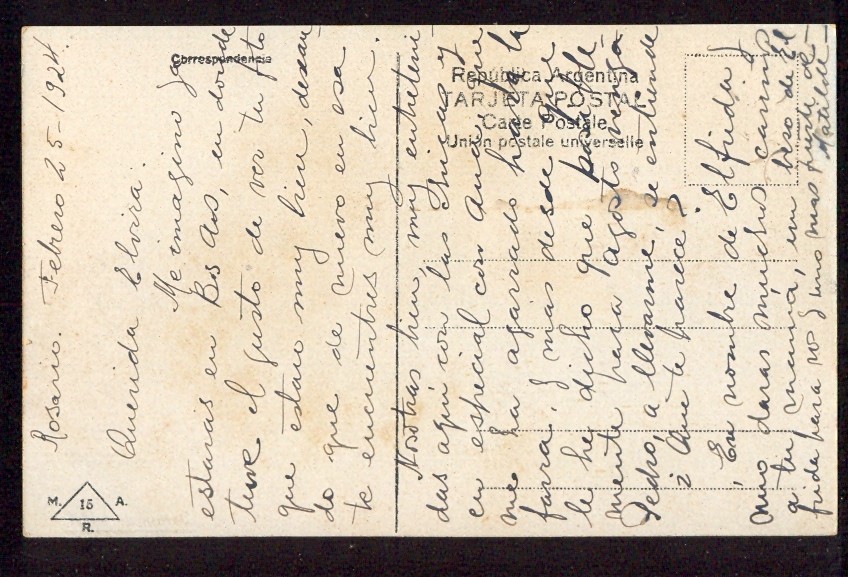 Correspondencia
República Argentina
TARJETA POSTAL
Carte Postale
Unión postale universelle
M. 15 A.
R.
Rosario. Febrero 25-1924.
Querida Elvira:
Me imagino ya
estarás en Bs As, en donde
tuve el gusto de ver tu foto
que estaís muy bien, desean
do que de nuevo en esa
te encuentres muy bien.
Nosotras bien, muy entreteni
das aquí con las chicas y
en especial con Ana, que
me ha agarrado hasta la
farra, y mas desde que
le he dicho que posible-
mente para agosto venga
Pedro, a llevarme, se entiende
¿Qué te parece?
En nombre de Elfrida y
mio daras muchos cariños
a tu mamá, un beso de El
frida para vos y uno mas fuerte de
Matilde